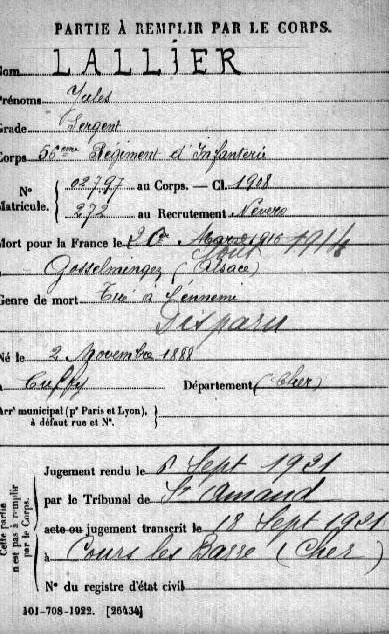 PARTIE À REMPLIR PAR LE CORPS.
Nom LALLIER
Prénoms Jules
Grade Sergent
Corps 56eme Régiment d'Infanterie
N° Matricule. 02797 au Corps. — Cl. 1908
272 au Recrutement Nevers
Mort pour la France le 20 Août 1914
à Gosselmingen (Alsace)
Genre de mort Tué à l'ennemi
Disparu
Né le 2 Novembre 1888
à Cuffy Département (Cher)
Arrt municipal (pr Paris et Lyon), à défaut rue et N°.
Cette partie n'est pas à remplir par le Corps.
Jugement rendu le 6 Sept 1921
par le Tribunal de St Amand
acte ou jugement transcrit le 18 Sept 1921
à Cours les Barre (Cher)
N° du registre d'état civil
101-708-1922. [26434]